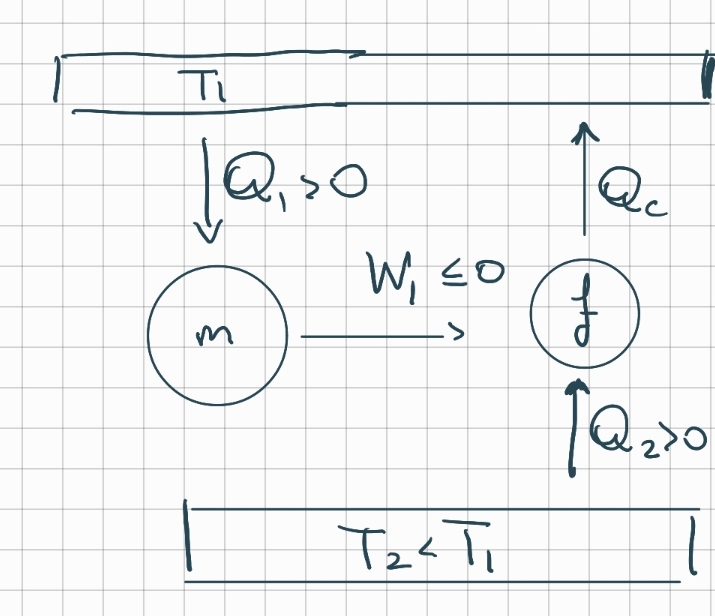 T₁
Q₁ > 0
Q_c
W₁ ≤ 0
m
f
Q₂ > 0
T₂ < T₁